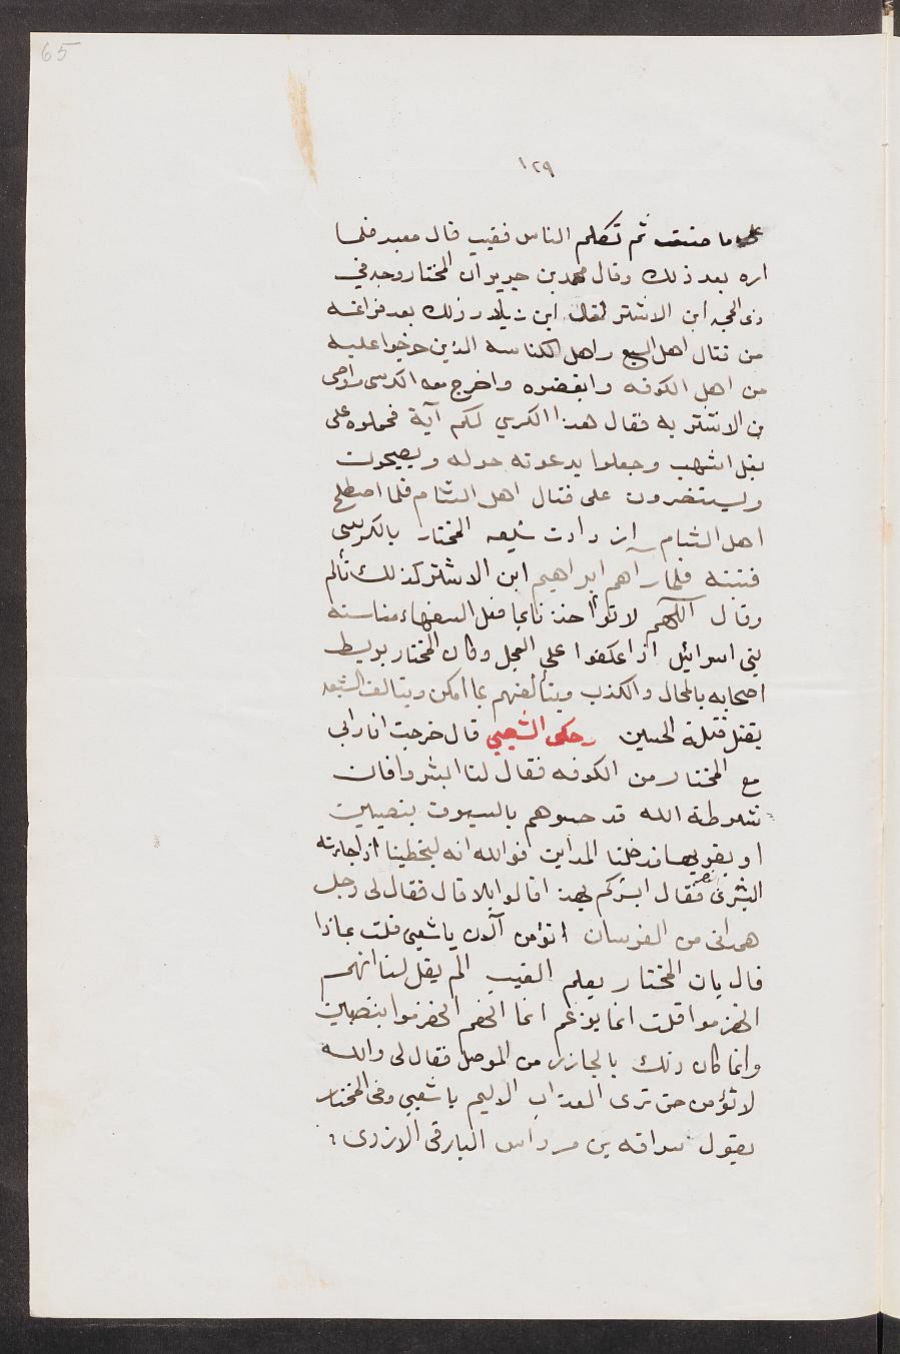 65
١٢٩
على ما صنعت ثم تكلم الناس فغيب قال معبد فلما
اره بعد ذلك وقال محمد بن جرير ان المختار وجه في
ذى الحجه ابن الاشتر لقتال ابن زياد وذلك بعد فراغه
من قتال اهل السبع واهل الكناسه الذين خرجوا عليه
من اهل الكوفه وابغضوه واخرج معه الكرسى
بن الاشتر به فقال هذا الكرسي لكم آية فحملوه على
بغل اشهب وجعلوا يدعونه حوله ويصيحون
ويستنصرون على قتال اهل الشام فلما اصطلح
اهل الشام ازدادت شيعه المختار بالكرسى
فتنة فلما رآهم ابراهيم ابن الاشتر كذلك تألم
وقال اللهم لا تؤاخذنا بما فعل السفهاء منا سنه
بنى اسرائيل اذا عكفوا على العجل وكان المختار يربط
اصحابه بالمحال والكذب ويتألفهم بما امكن ويتالف الشيعه
بقتل قتلة الحسين وحكى الشعبي قال خرجت انا وابى
مع المختار من الكوفه فقال لنا ابشروا فان
شرطة الله قد حسوهم بالسيوف بنصيبين
او بقربها فدخلنا المداين فوالله انه ليخطبنا اذ جاءته
البشرى بنصر فقال ابشركم بهذا قالوا بلا قال فقال لى رجل
همدانى من الفرسان اتؤمن آلان يا شعبى قلت بماذا
قال بان المختار يعلم الغيب الم يقل لنا انهم
انهزموا قلت انما يزعم انما انهم انهزموا بنصيبين
وانما كان ذلك بالجازر من الموصل فقال لى والله
لا تؤمن حتى ترى العذاب الاليم يا شعبي وفى المختار
يقول سراقه بن مرداس البارقى الازدى :